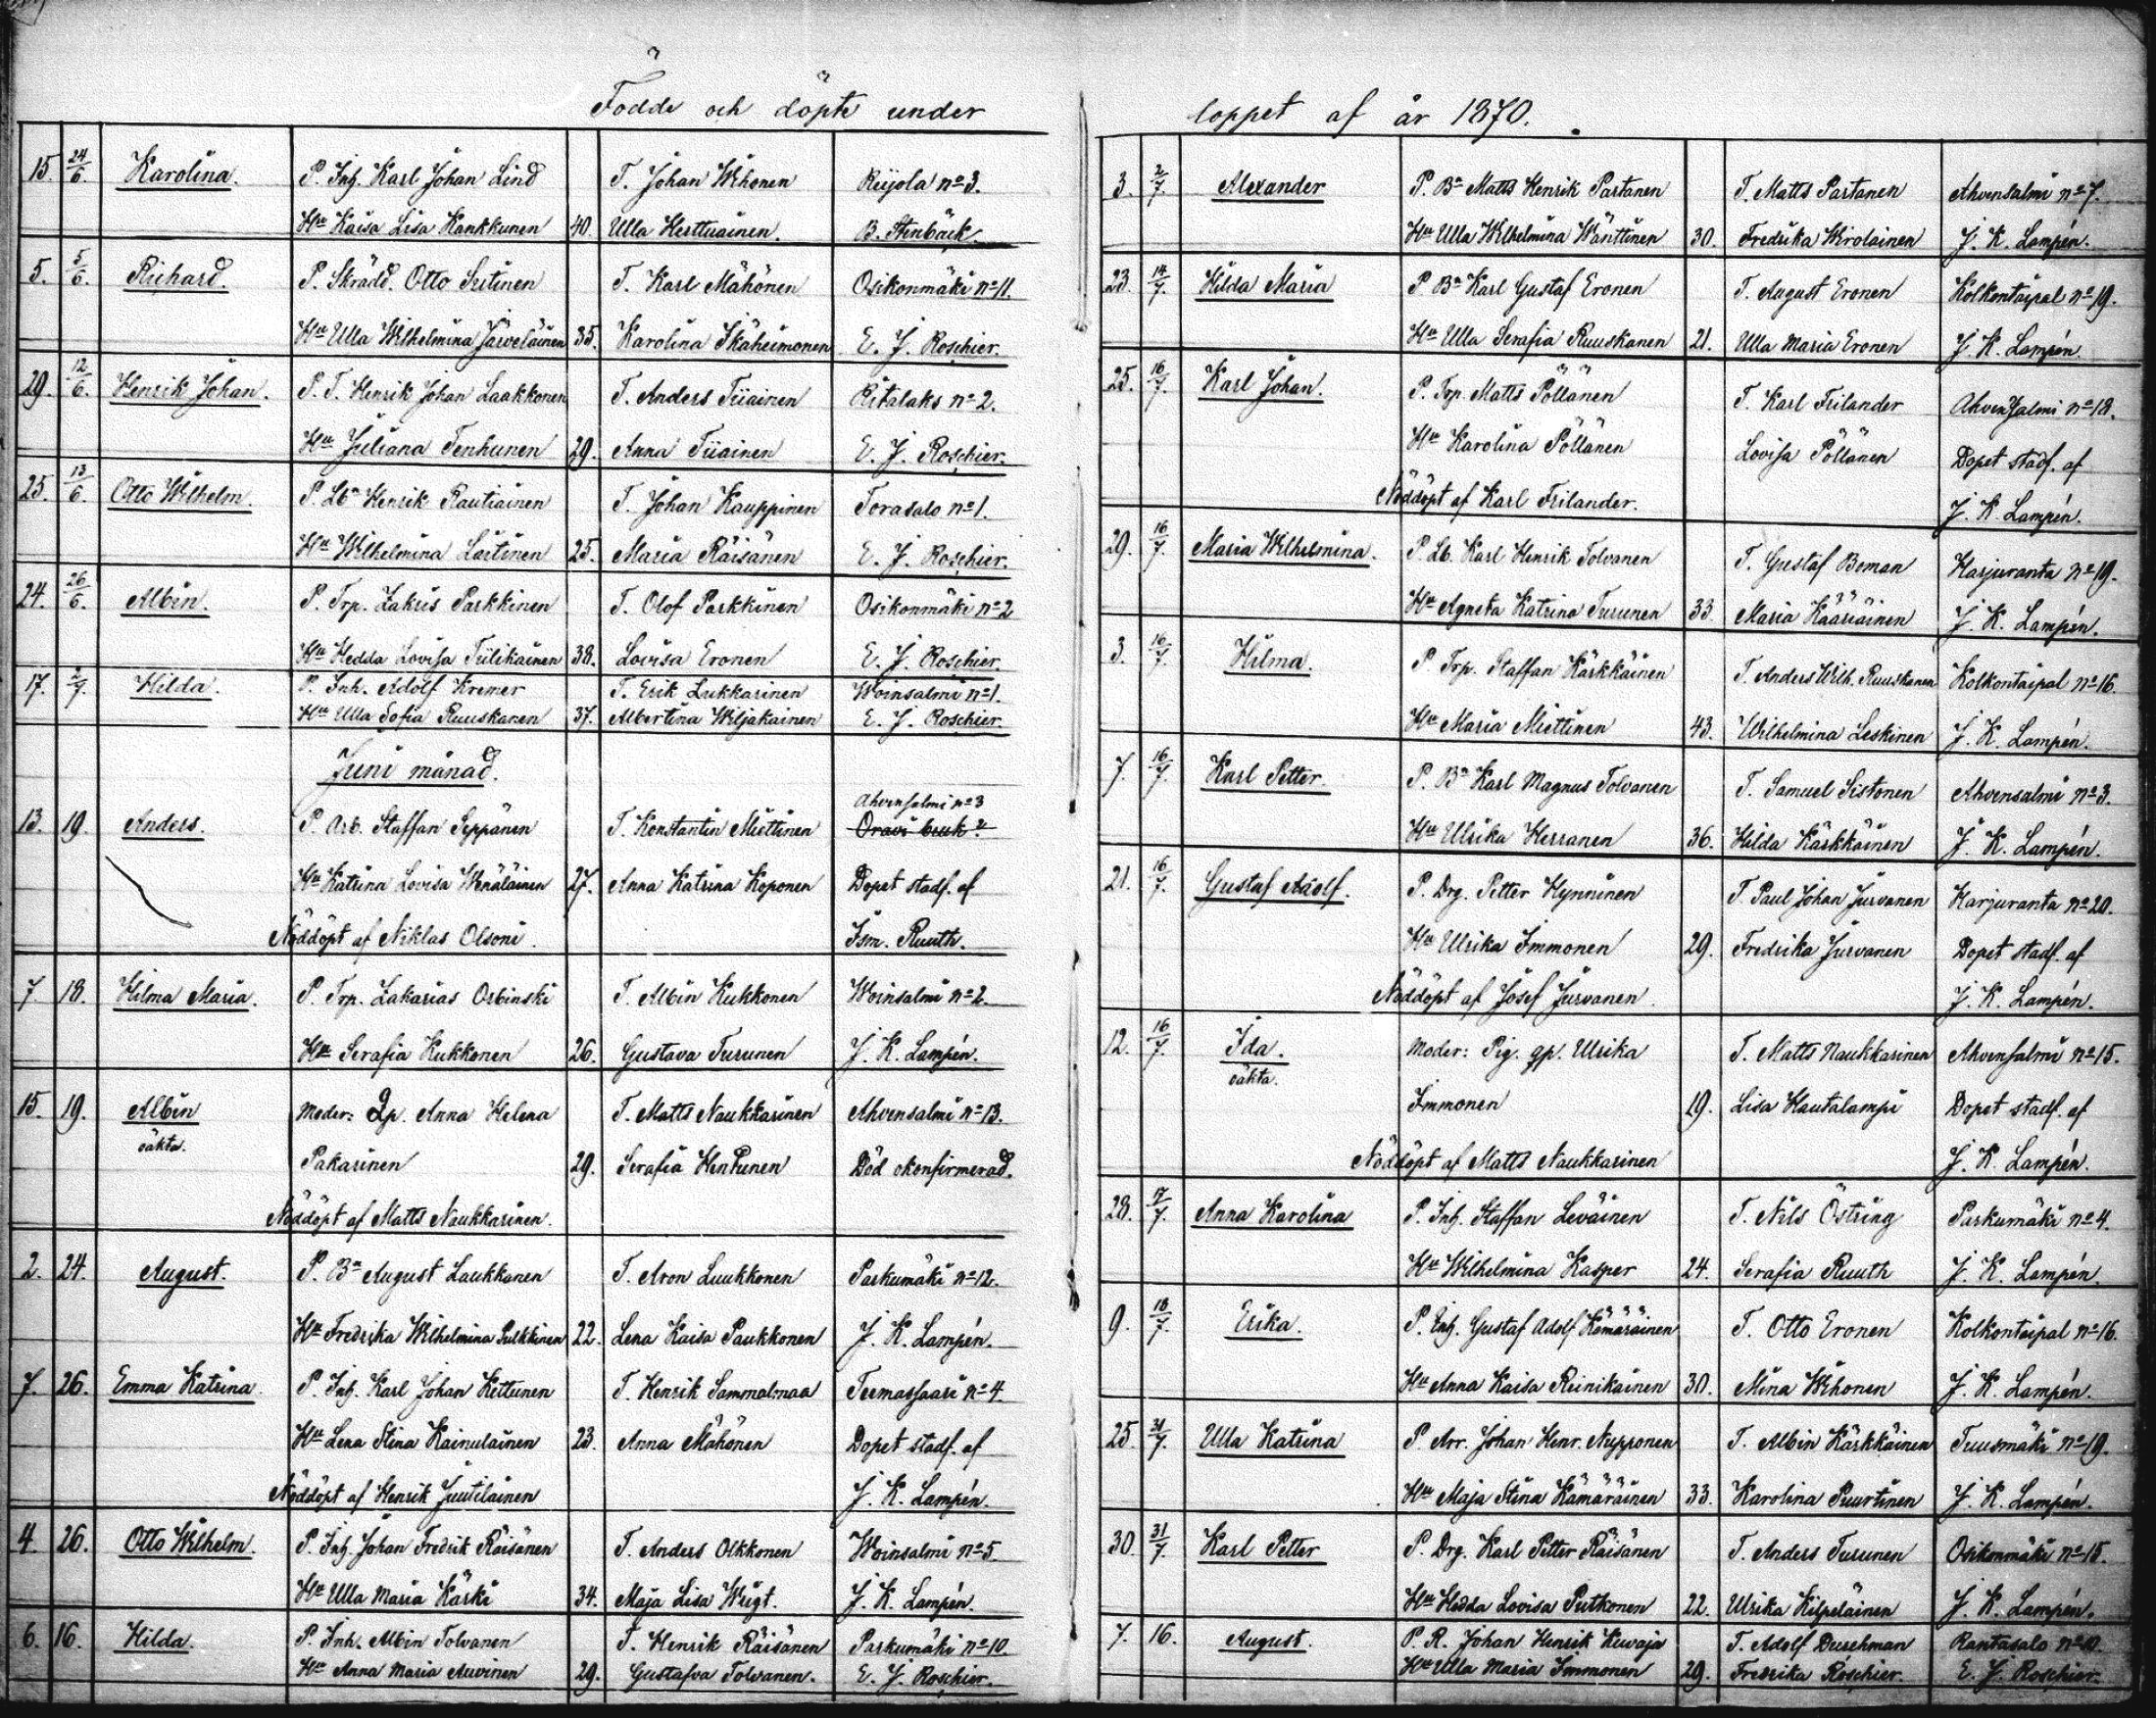 Födde och döpte under
15. 24/6. Karolina. P. Inh. Karl Johan Lind T. Johan Wihonen Reijola no 3.
Hu Kaisa Lisa Hankkunen 40. Ulla Herttuainen. B. Stenbäck.
5. 5/6. Richard. P. Skrädd. Otto Sutinen T. Karl Mähönen Osikonmäki no 11.
Hu Ulla Wilhelmina Järveläinen 35. Karolina Ikäheimonen E. J. Roschier.
29. 12/6. Henrik Johan. P. T. Henrik Johan Laakkonen T. Anders Tiiainen Ritalaks no 2.
Hu Juliana Tenhunen 29. Anna Tiiainen E. J. Roschier.
25. 13/6. Otto Wilhelm. P. Lbn Henrik Rautiainen T. Johan Kauppinen Torasalo no 1.
Hu Wilhelmina Laitinen 25. Maria Räisänen E. J. Roschier.
24. 26/6. Albin. P. Trp. Zakris Parkkinen T. Olof Parkkinen Osikonmäki no 2
Hu Hedda Lovisa Tiilikainen 38. Lovisa Eronen E. J. Roschier.
17. 2/7. Hilda. P. Inh. Adolf Kremer T. Erik Lukkarinen Woinsalmi no 1.
Hu Ulla Sofia Ruuskanen 37. Albertina Wiljakainen E. J. Roschier.
Juni månad.
Ahvensalmi no 3
13. 19. Anders. P. Arb. Staffan Seppänen T. Konstantin Miettinen Oravi bruk?
Hu Katrina Lovisa Wenäläinen 27. Anna Katrina Koponen Dopet stadf. af
Nöddöpt af Niklas Olsoni. Ism. Ruuth.
7 18. Hilma Maria. P. Trp. Zakarias Orbinski T. Albin Kukkonen Woinsalmi no 2.
Hu Serafia Kukkonen 26. Gustava Turunen J. K. Lampén.
15. 19. Albin Moder: Qp. Anna Helena T. Matts Naukkarinen Ahvensalmi no 13.
oäkta. Pakarinen 29. Serafia Henttunen Död okonfirmerad.
Nöddöpt af Matts Naukkarinen.
2. 24. August. P. Bn August Laukkanen T. Aron Luukkonen Parkumäki no 12.
Hu Fredrika Wilhelmina Pulkkinen 22. Lena Kaisa Paukkonen J. K. Lampén.
7. 26. Emma Katrina. P. Inh. Karl Johan Kettunen T. Henrik Sammalmaa Teemassaari no 4.
Hu Lena Stina Kainulainen 23. Anna Mähönen Dopet stadf. af
Nöddöpt af Henrik Juutilainen J. K. Lampén.
4 26. Otto Wilhelm. P. Inh. Johan Fredrik Räisänen T. Anders Olkkonen Woinsalmi no 5.
Hu Ulla Maria Käski 34. Maja Lisa Weigt. J. K. Lampén.
6. 16. Hilda. P. Inh. Albin Tolvanen T. Henrik Räisänen Parkumäki no 10.
Hu Anna Maria Auvinen 29. Gustafva Tolvanen. E. J. Roschier.
loppet af år 1870.
3. 2/7. Alexander P. Bn Matts Henrik Partanen T. Matts Partanen Ahvensalmi no 7.
Hu Ulla Wilhelmina Wänttinen 30. Fredrika Wirolainen J. K. Lampén.
23. 14/7. Hilda Maria P. Bn Karl Gustaf Eronen T. August Eronen Kolkontaipal no 19.
Hu Ulla Serafia Ruuskanen 21. Ulla Maria Eronen J. K. Lampén
25. 16/7. Karl Johan. P. Trp. Matts Pöllänen T. Karl Frilander Ahvensalmi no 18.
Hu Karolina Pöllänen Lovisa Pöllänen Dopet stadf. af
Nöddöpt af Karl Frilander. J. K. Lampén.
29. 16/7. Maria Wilhelmina. P. Lb. Karl Henrik Tolvanen T. Gustaf Boman Harjuranta no 19.
Hu Agneta Katrina Turunen 33. Maria Kääriäinen J. K. Lampén.
3. 16/7. Hilma. P. Trp. Staffan Kärkkäinen T. Anders Wilh. Ruuskanen Kolkontaipal no 16.
Hu Maria Miettinen 43. Wilhelmina Leskinen J. K. Lampén.
7. 16/7. Karl Petter. P. Bn Karl Magnus Tolvanen T. Samuel Sistonen Ahvensalmi no 3.
Hu Ulrika Herranen 36. Hilda Kärkkäinen J. K. Lampén.
21. 16/7. Gustaf Adolf. P. Drg. Petter Hynninen T. Paul Johan Jurvanen Harjuranta no 20.
Hu Ulrika Immonen 29. Fredrika Jurvanen Dopet stadf. af
Nöddöpt af Josef Jurvanen. J. K. Lampén.
12. 16/7. Ida. Moder: Pig. qp. Ulrika T. Matts Naukkarinen Ahvensalmi no 15.
oäkta. Immonen 19. Lisa Hautalampi Dopet stadf. af
Nöddöpt af Matts Naukkarinen J. K. Lampén.
28. 17/7. Anna Karolina P. Inh. Staffan Leväinen T. Nils Östring Parkumäki no 4.
Hu Wilhelmina Kasper 24. Serafia Ruuth J. K. Lampén.
9. 18/7. Erika. P. Inh. Gustaf Adolf Kämäräinen T. Otto Eronen Kolkontaipal no 16.
Hu Anna Kaisa Reinikainen 30. Mina Wihonen J. K. Lampén.
25. 31/7. Ulla Katrina P. Arr. Johan Henr. Nupponen T. Albin Kärkkäinen Tuusmäki no 19.
Hu Maja Stina Kämäräinen 33. Karolina Puurtinen J. K. Lampén.
30. 31/7. Karl Petter P. Drg. Karl Petter Räisänen T. Anders Turunen Osikonmäki no 15.
Hu Hedda Lovisa Putkonen 22. Ulrika Kilpeläinen J. K. Lampén.
7. 16. August. P. R. Johan Henrik Kuvaja T. Adolf Durchman Rantasalo no 10.
Hu Ulla Maria Immonen 29. Fredrika Roschier. E. J. Roschier.